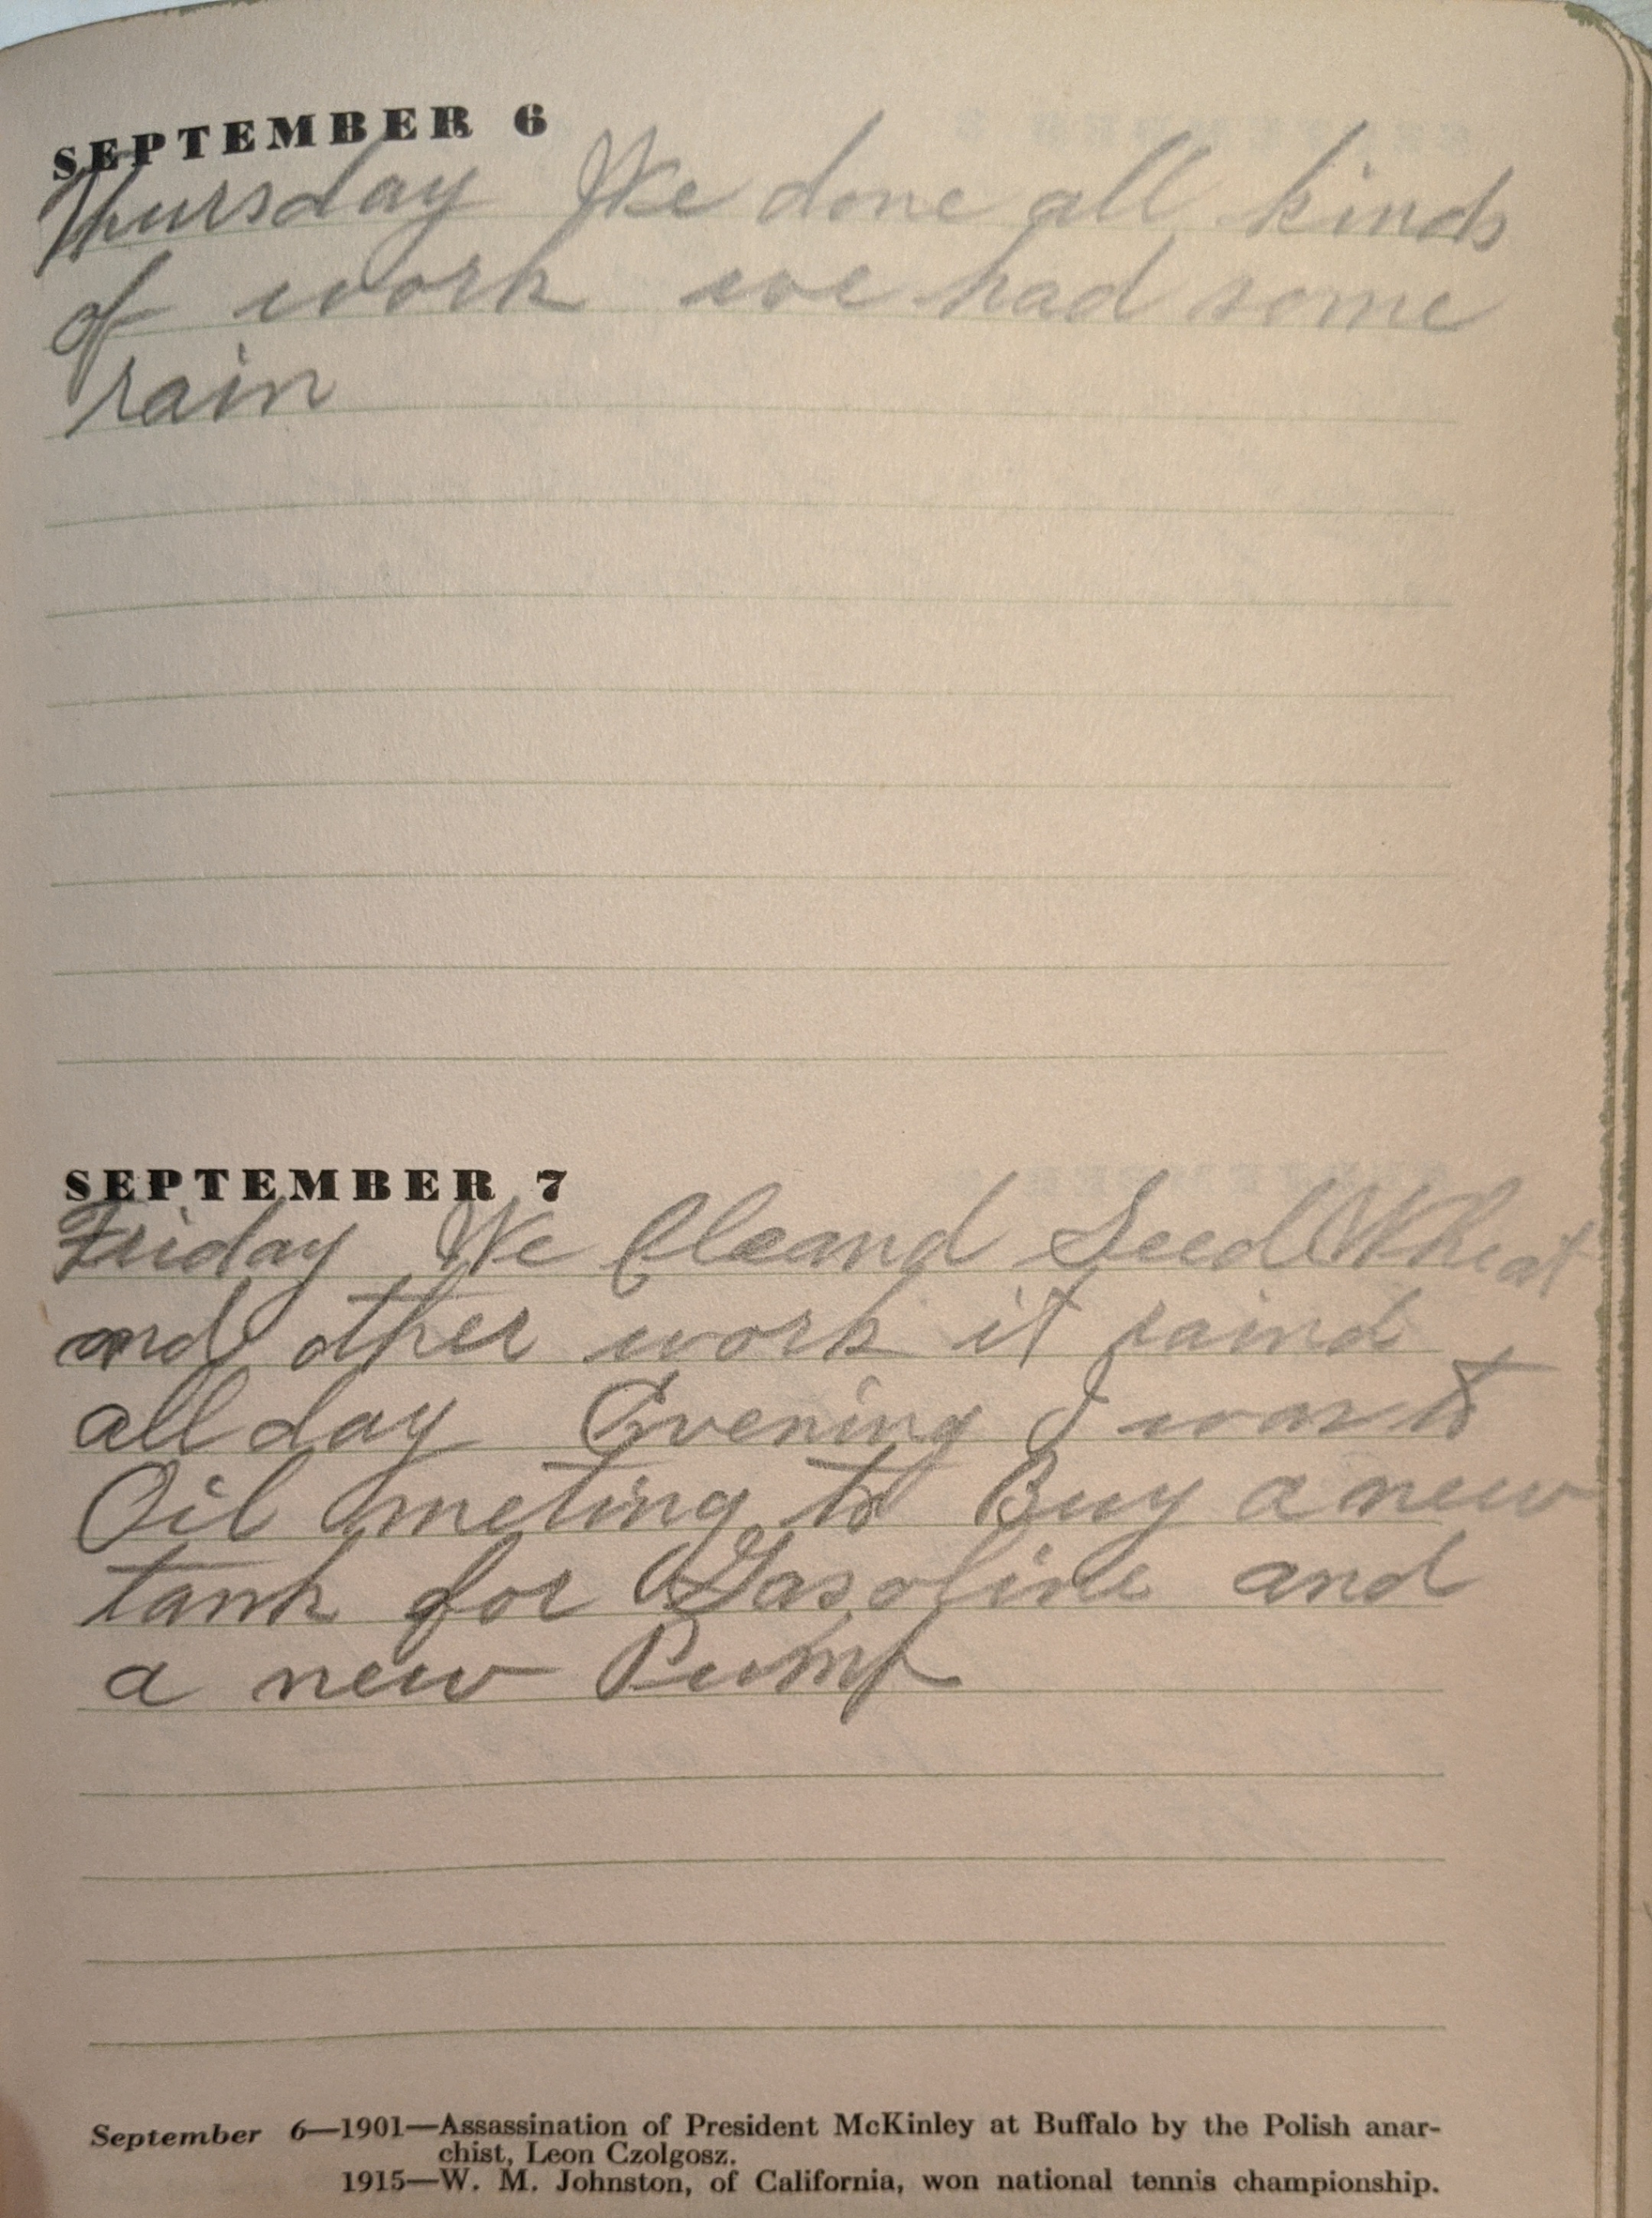 SEPTEMBER 6
Thursday We done all kinds
of work we had some
rain
SEPTEMBER 7
Friday We Cleand Seed Wheat
and other work it raind
all day Evening I was to
Oil meting to Buy a new
tank for Gasoline and
a new Pump
September 6—1901—Assassination of President McKinley at Buffalo by the Polish anar-
chist, Leon Czolgosz.
1915—W. M. Johnston, of California, won national tennis championship.